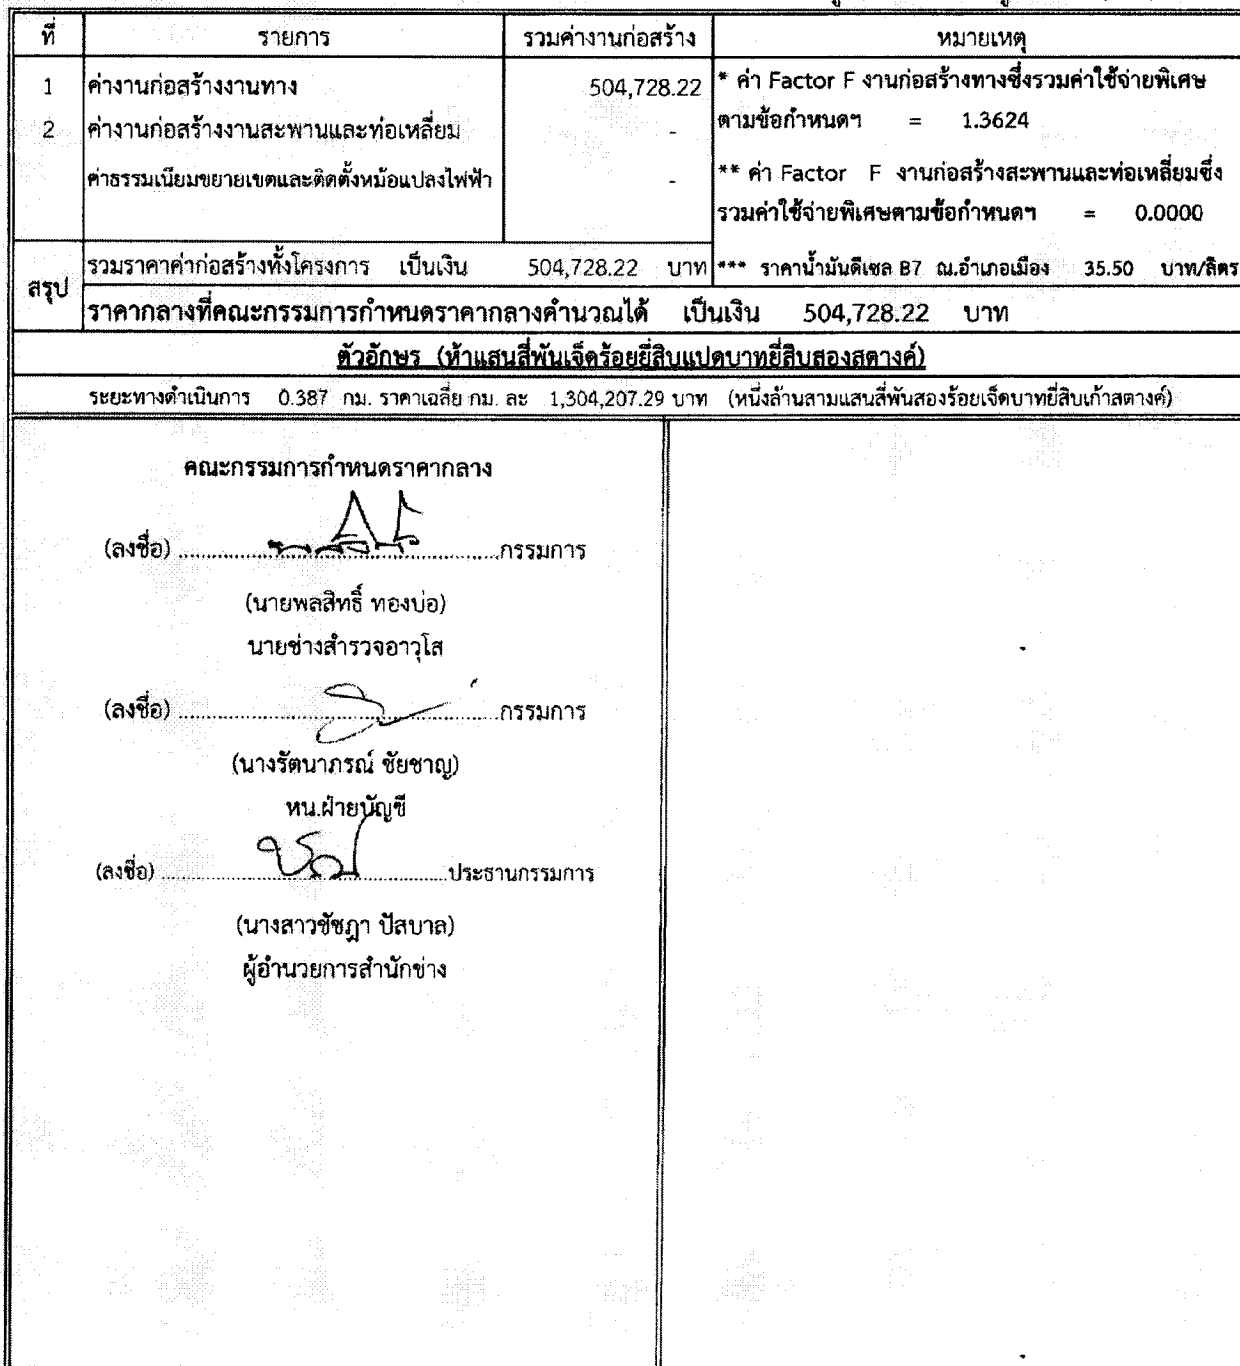 ที่ รายการ รวมค่างานก่อสร้าง หมายเหตุ
1 ค่างานก่อสร้างงานทาง 504,728.22 * ค่า Factor F งานก่อสร้างทางซึ่งรวมค่าใช้จ่ายพิเศษ
2 ค่างานก่อสร้างงานสะพานและท่อเหลี่ยม - ตามข้อกำหนดฯ = 1.3624
ค่าธรรมเนียมขยายเขตและติดตั้งหม้อแปลงไฟฟ้า - ** ค่า Factor F งานก่อสร้างสะพานและท่อเหลี่ยมซึ่ง
รวมค่าใช้จ่ายพิเศษตามข้อกำหนดฯ = 0.0000
สรุป รวมราคาค่าก่อสร้างทั้งโครงการ เป็นเงิน 504,728.22 บาท *** ราคาน้ำมันดีเซล B7 ณ.อำเภอเมือง 35.50 บาท/ลิตร
ราคากลางที่คณะกรรมการกำหนดราคากลางคำนวณได้ เป็นเงิน 504,728.22 บาท
ตัวอักษร (ห้าแสนสี่พันเจ็ดร้อยยี่สิบแปดบาทยี่สิบสองสตางค์)
ระยะทางดำเนินการ 0.387 กม. ราคาเฉลี่ย กม. ละ 1,304,207.29 บาท (หนึ่งล้านสามแสนสี่พันสองร้อยเจ็ดบาทยี่สิบเก้าสตางค์)
คณะกรรมการกำหนดราคากลาง
(ลงชื่อ) ........................................กรรมการ
(นายพลสิทธิ์ ทองบ่อ)
นายช่างสำรวจอาวุโส
(ลงชื่อ) ........................................กรรมการ
(นางรัตนาภรณ์ ชัยชาญ)
หน.ฝ่ายบัญชี
(ลงชื่อ) ........................................ประธานกรรมการ
(นางสาวชัชฎา ปัสบาล)
ผู้อำนวยการสำนักช่าง